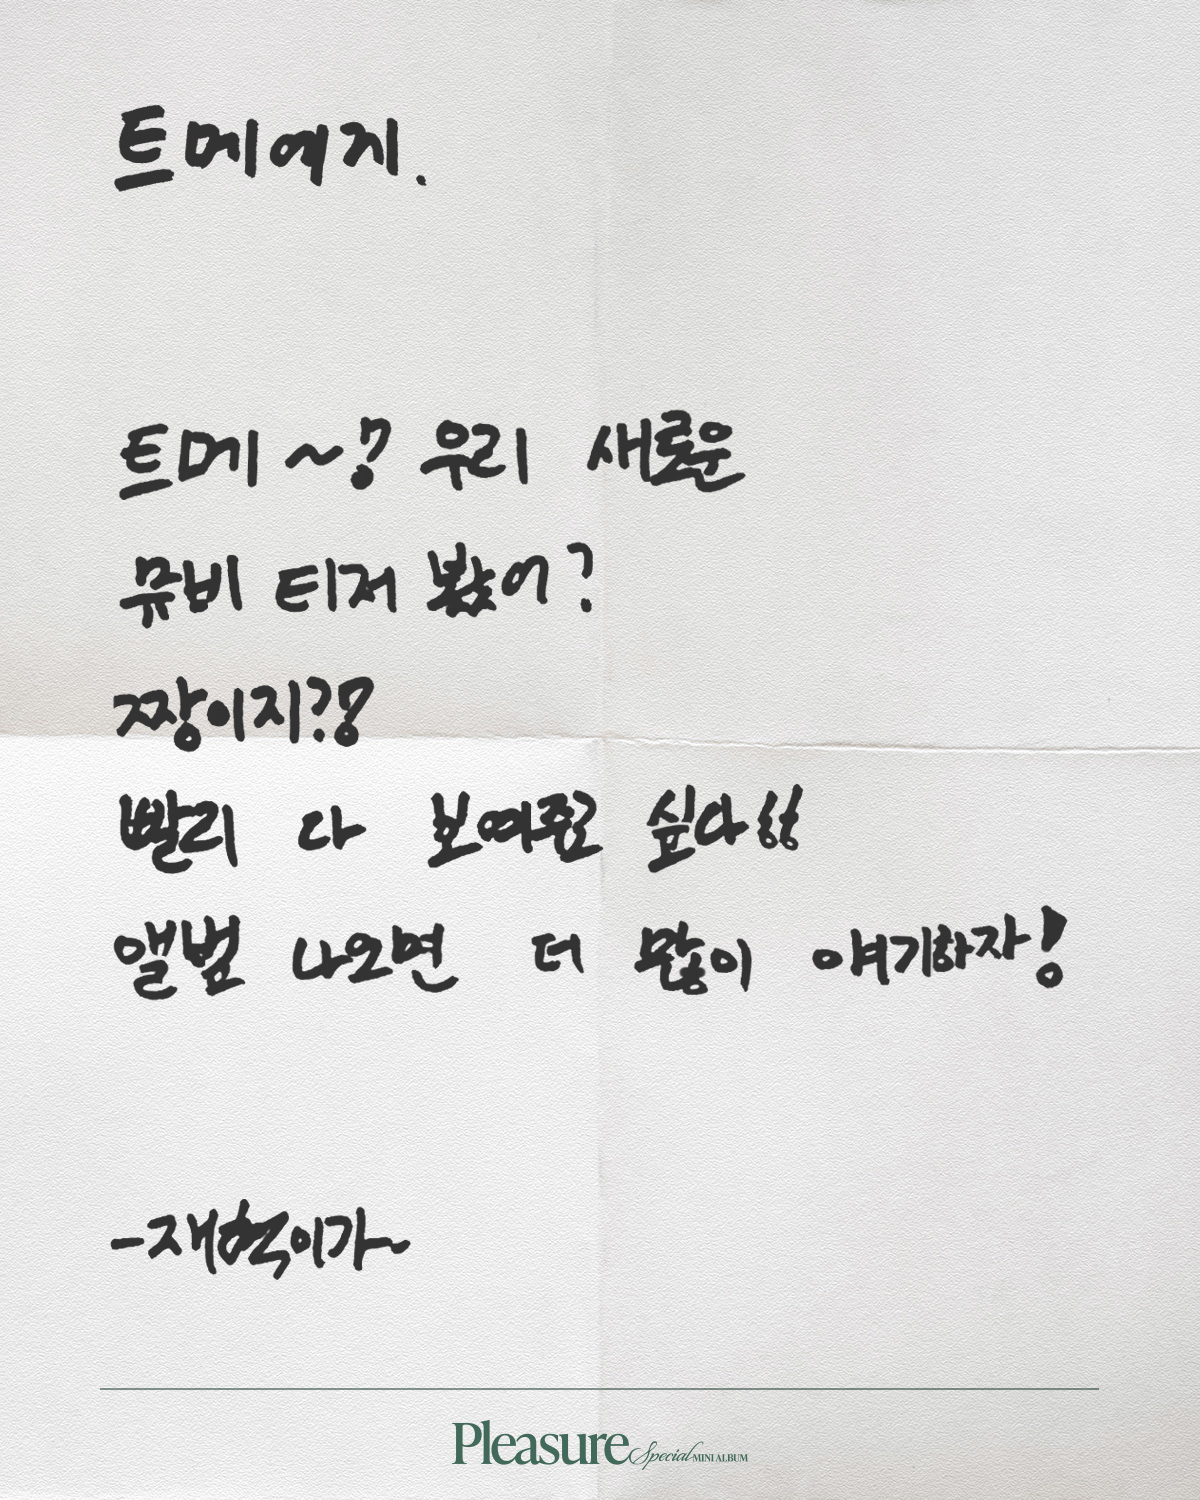 트메에게.
트메~? 우리 새로운
뮤비 티저 봤어?
짱이지??
빨리 다 보여주고 싶다ㅎㅎ
앨범 나오면 더 많이 얘기하자!
-재혁이가~
Pleasure Special MINI ALBUM